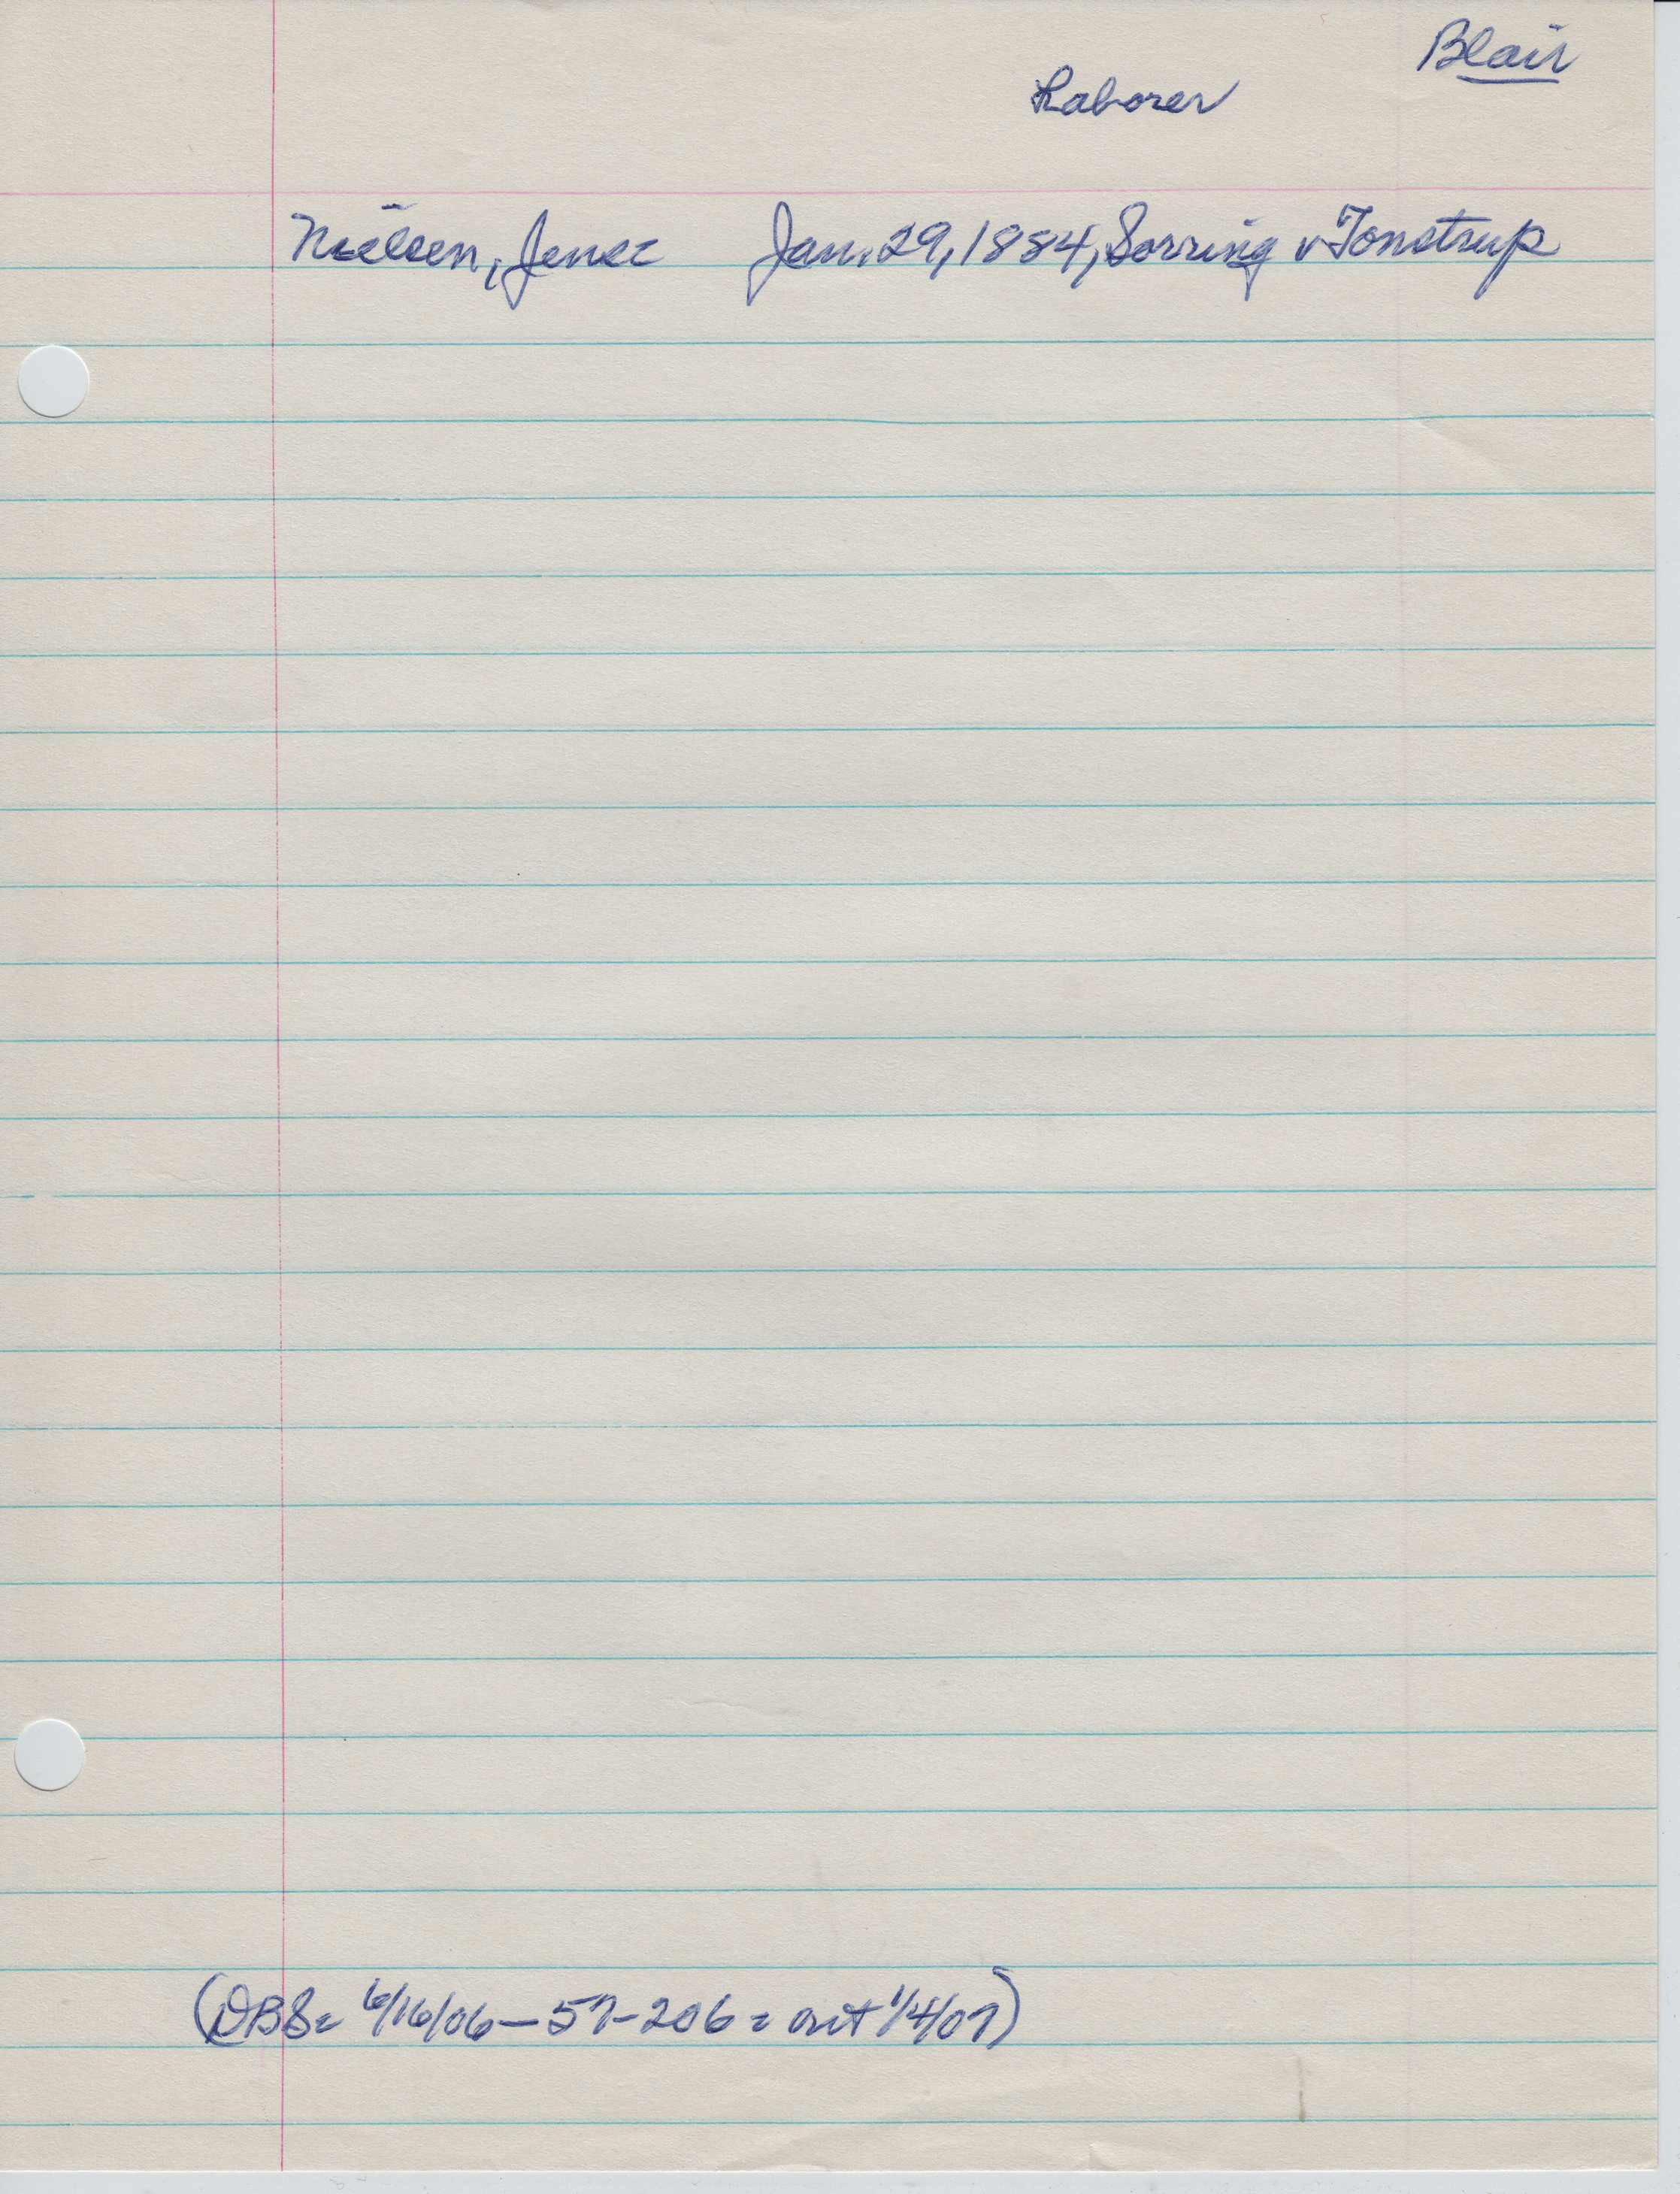 Blair
Laborer
Nielsen, Jens Jan. 29, 1884, Sorring v Tonstrup
(DBS= 6/16/06-57-206= out 1/4/07)